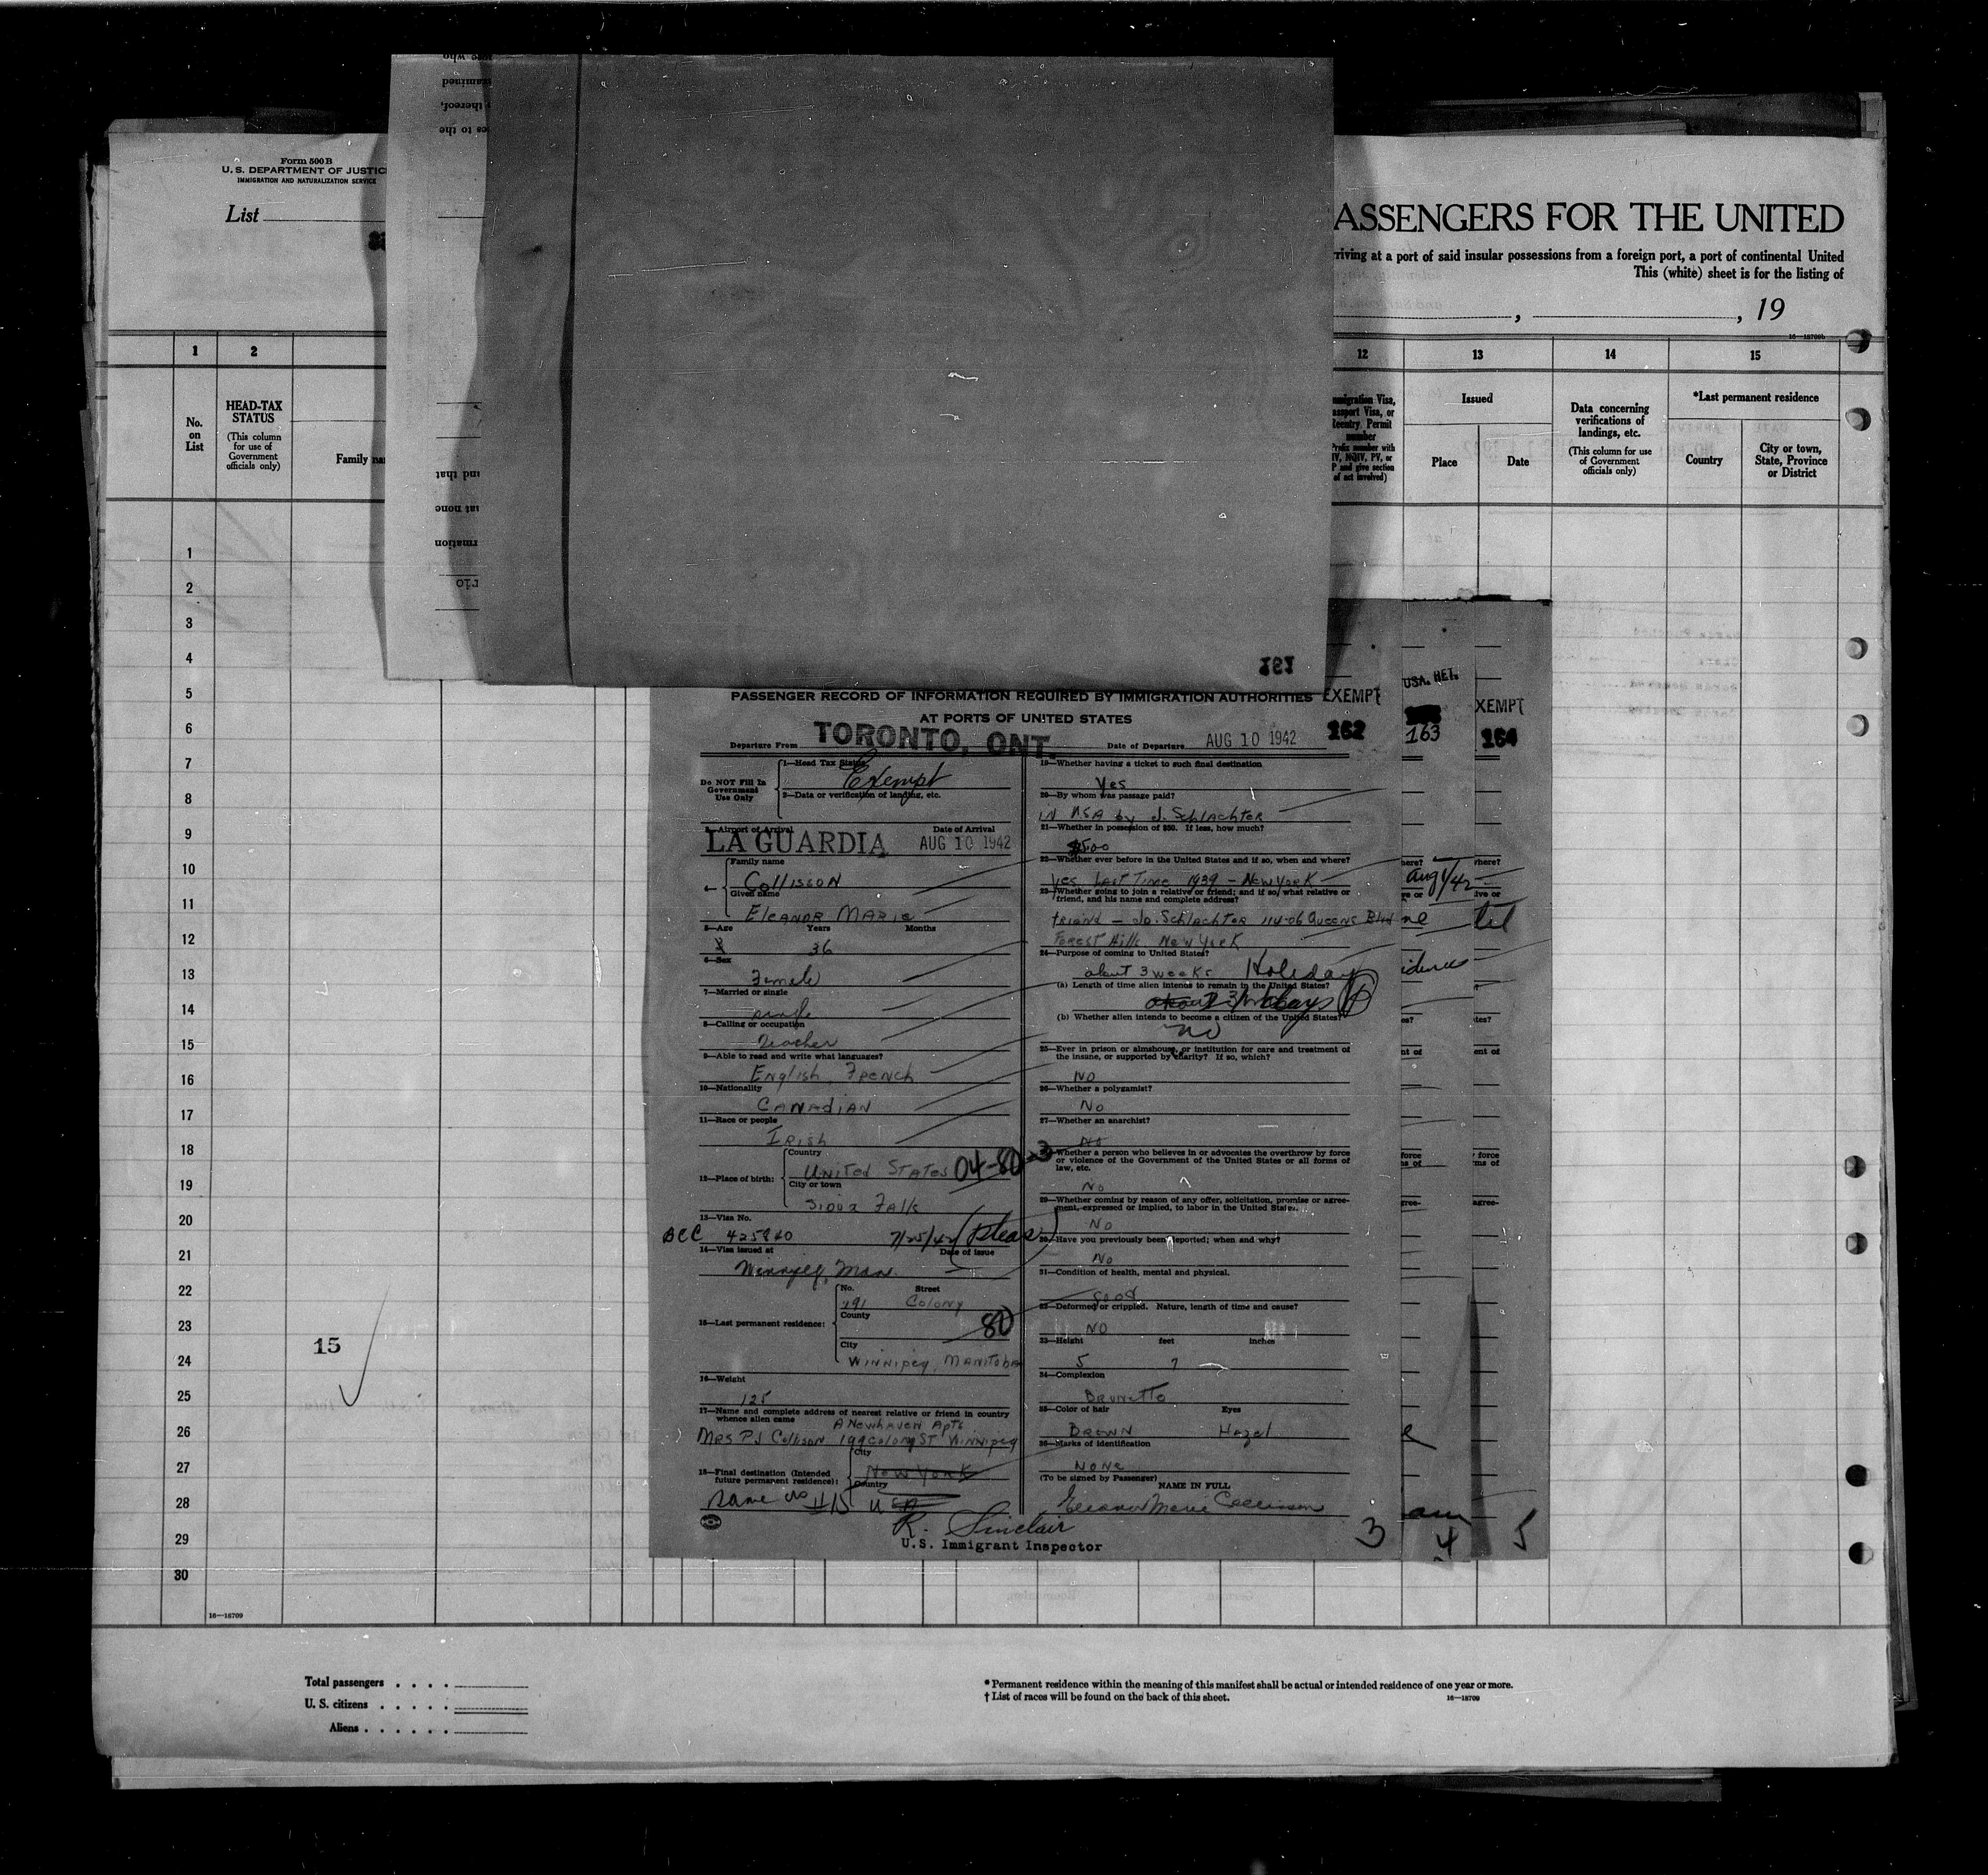 Form 500 B
U. S. DEPARTMENT OF JUSTIC
IMMIGRATION AND NATURALIZATION SERVICE
List
ASSENGERS FOR THE UNITED
riving at a port of said insular possessions from a foreign port, a port of continental United
This (white) sheet is for the listing of
, , 19
16—18709b
1 2 12 13 14 15
No. on List
HEAD-TAX STATUS
(This column for use of Government officials only)
Family na
migration Visa, assport Visa, or Reentry Permit number
Issued
Place Date
Data concerning verifications of landings, etc.
(This column for use of Government officials only)
*Last permanent residence
Country
City or town, State, Province or District
1
2
3
4
5
6
7
8
9
10
11
12
13
14
15
16
17
18
19
20
21
22
23
24
25
26
27
28
29
30
15
16—18709
161
PASSENGER RECORD OF INFORMATION REQUIRED BY IMMIGRATION AUTHORITIES
AT PORTS OF UNITED STATES
EXEMPT
162
USA. RET.
163
XEMPT
164
Departure From TORONTO, ONT. Date of Departure AUG 10 1942
Do NOT Fill In Government Use Only
1—Head Tax Status
Exempt
2—Data or verification of landing, etc.
3—Airport of Arrival Date of Arrival
LA GUARDIA AUG 10 1942
4— Family name
Collisson
Given name
Eleanor Marie
5—Age Years Months
36
6—Sex
Female
7—Married or single
single
8—Calling or occupation
Teacher
9—Able to read and write what languages?
English, French
10—Nationality
Canadian
11—Race or people
Irish
12—Place of birth: Country
United States 04-80-3
City or town
Sioux Falls
13—Visa No.
BCC 425840 7/25/42 (Pleas)
14—Visa issued at Date of issue
Winnipeg, Man.
15—Last permanent residence:
No. Street
191 Colony
County
80
City
Winnipeg, Manitoba
16—Weight
125
17—Name and complete address of nearest relative or friend in country whence alien came
A Newhaven Apts
Mrs PJ Collison 199 Colony St Winnipeg
18—Final destination (Intended future permanent residence):
City
New York
Country
Same as #15 USA
R. Sinclair
U.S. Immigrant Inspector
19—Whether having a ticket to such final destination
Yes
20—By whom was passage paid?
in USA by J. Schlachter
21—Whether in possession of $50. If less, how much?
$500
22—Whether ever before in the United States and if so, when and where?
Yes Last Time 1939 - New York
23—Whether going to join a relative or friend; and if so, what relative or friend, and his name and complete address?
friend - Jo. Schlachter 114-06 Queens Blvd
Forest Hills New York
24—Purpose of coming to United States?
about 3 weeks Holiday
(a) Length of time alien intends to remain in the United States?
days
(b) Whether alien intends to become a citizen of the United States?
no
25—Ever in prison or almshouse, or institution for care and treatment of the insane, or supported by charity? If so, which?
No
26—Whether a polygamist?
No
27—Whether an anarchist?
No
Whether a person who believes in or advocates the overthrow by force or violence of the Government of the United States or all forms of law, etc.
No
29—Whether coming by reason of any offer, solicitation, promise or agreement, expressed or implied, to labor in the United States.
No
30—Have you previously been deported; when and why?
No
31—Condition of health, mental and physical.
good
32—Deformed or crippled. Nature, length of time and cause?
No
33—Height feet inches
5 7
34—Complexion
Brunette
35—Color of hair Eyes
Brown Hazel
36—Marks of identification
None
(To be signed by Passenger)
NAME IN FULL
Eleanor Marie Collisson
3 4 5
Total passengers
U. S. citizens
Aliens
* Permanent residence within the meaning of this manifest shall be actual or intended residence of one year or more.
† List of races will be found on the back of this sheet.
16—18709